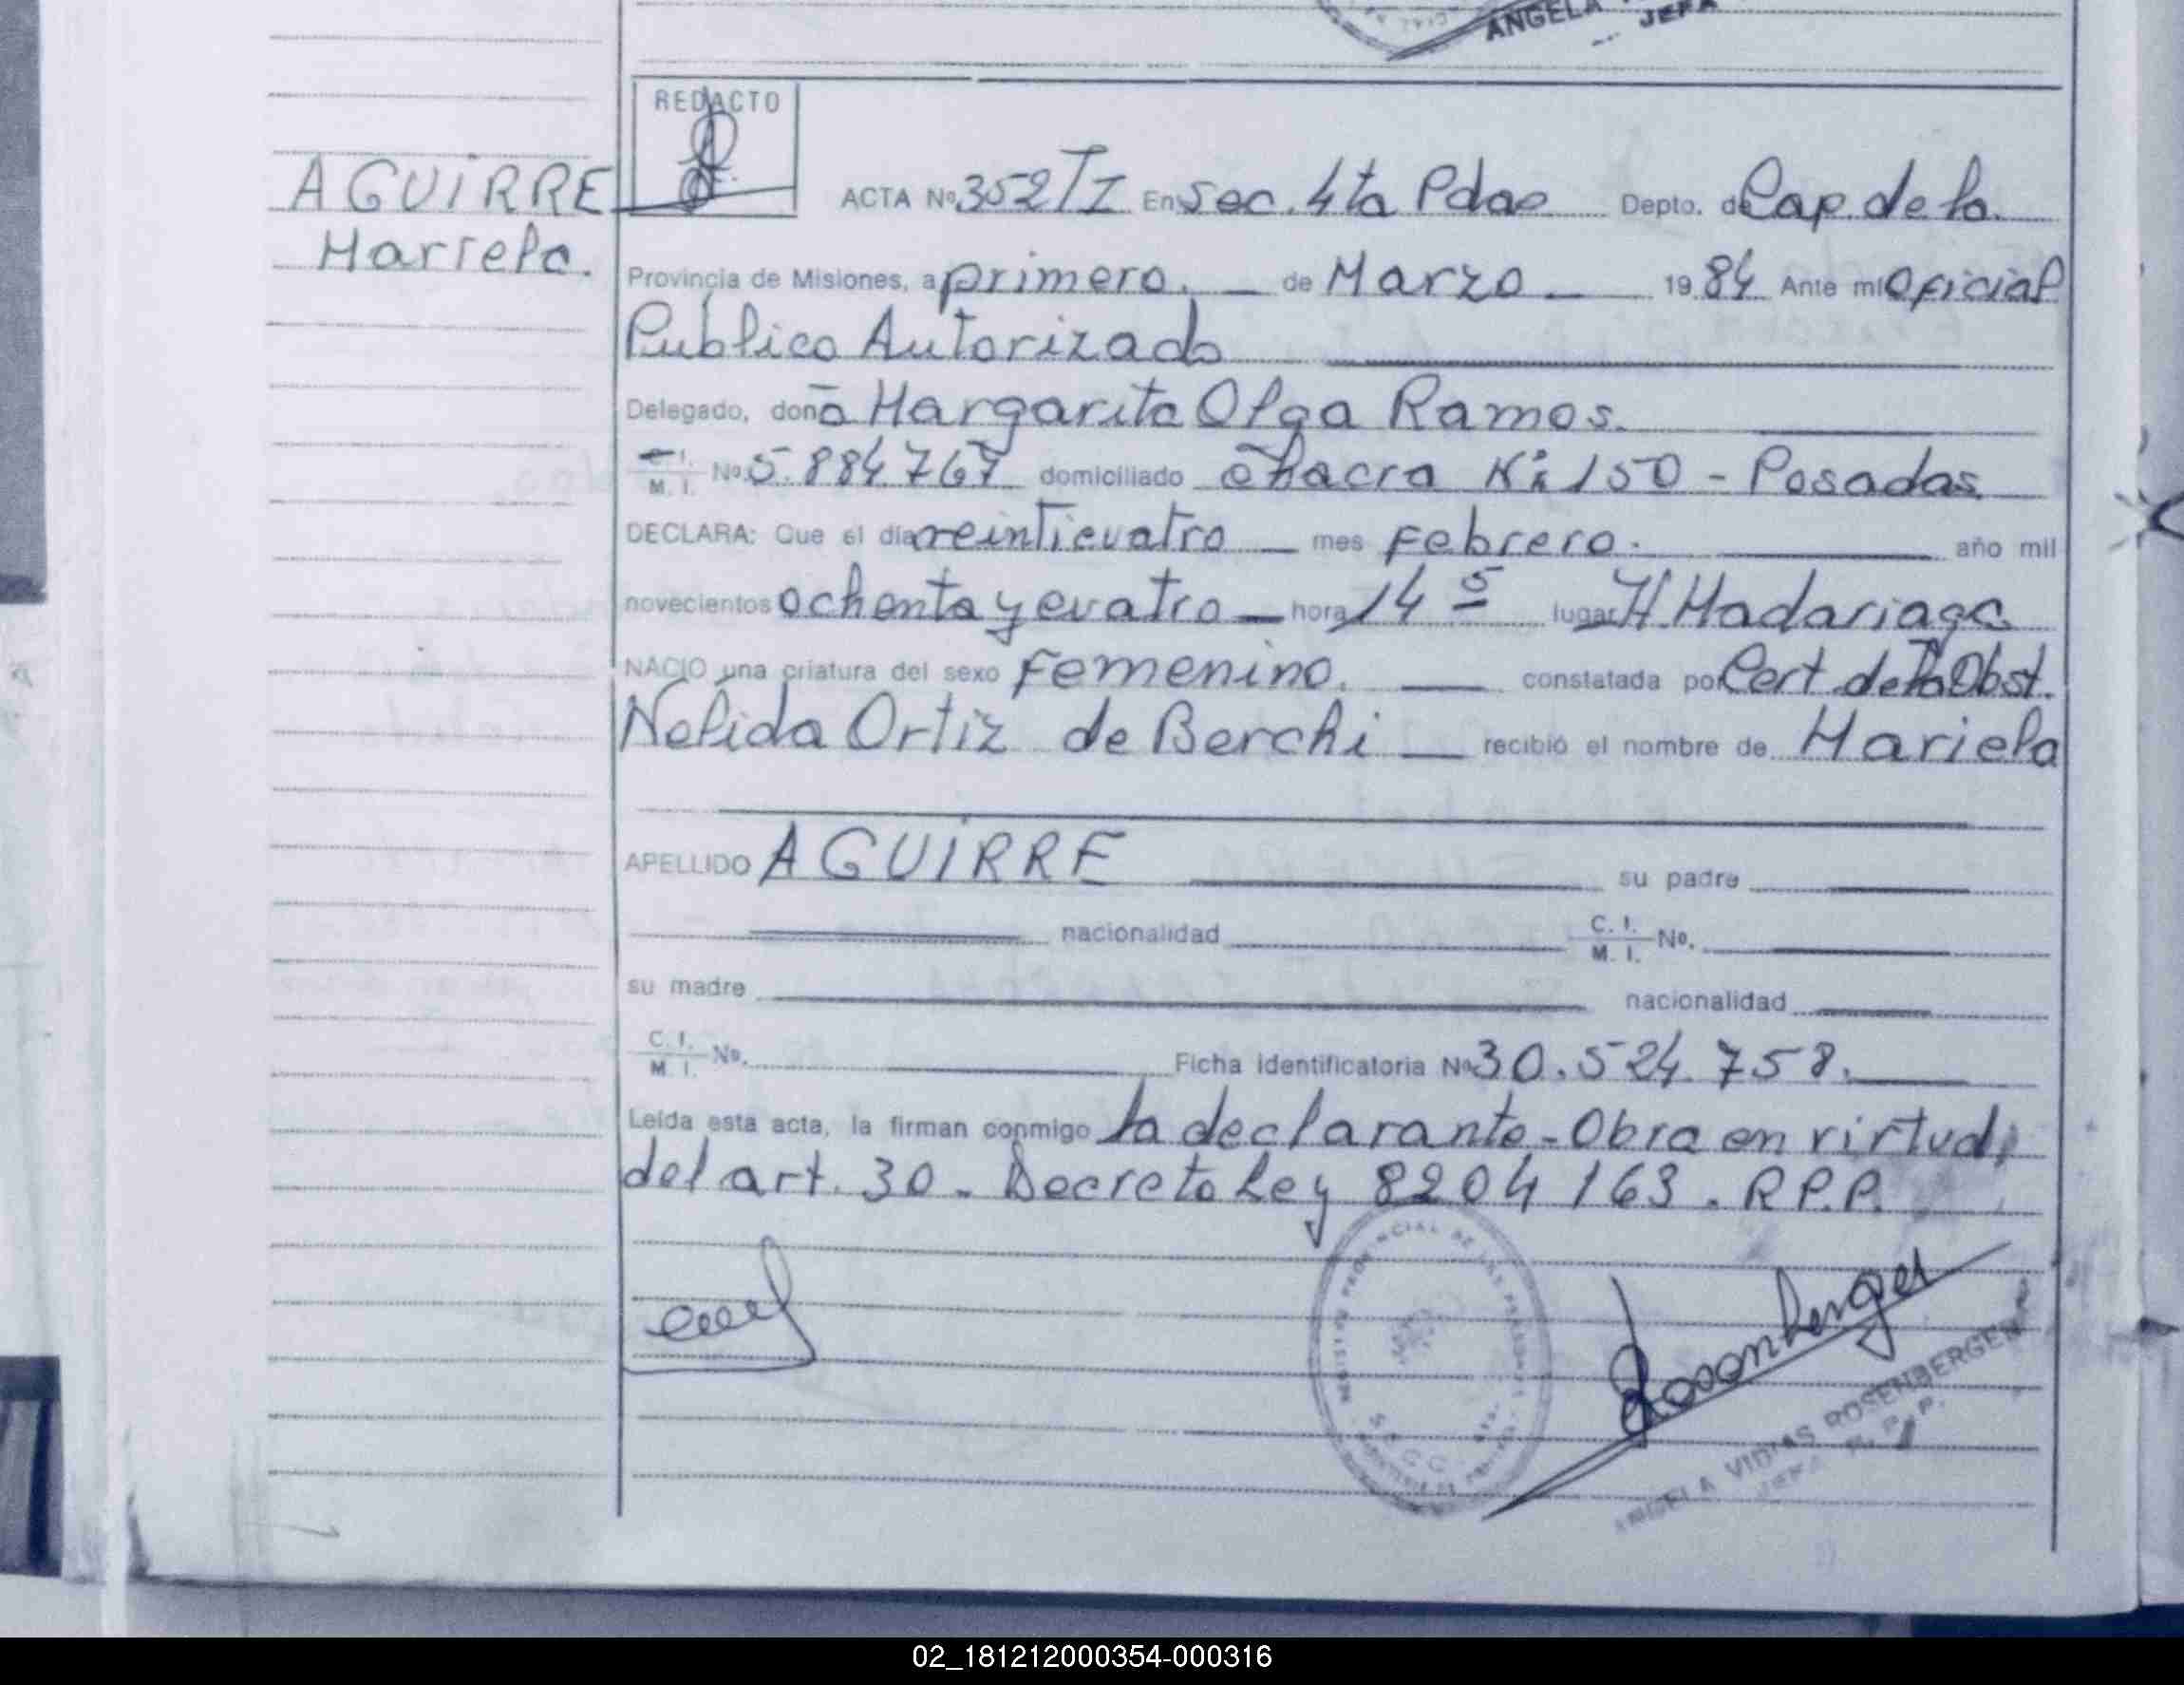 ANGELA
JEFA
REDACTO
AGUIRRE
Mariela.
ACTA Nº 352/T I En Sec. 4ta Pdas Depto. de Cap. de la
Provincia de Misiones, a primero. — de Marzo — 1984 Ante mi Oficial
Publico Autorizado
Delegado, doña Margarita Olga Ramos.
C. I. M. I. Nº 5.884.767 domiciliado chacra Nº 150 - Posadas
DECLARA: Que el día veinticuatro — mes Febrero. — año mil
novecientos ochenta y cuatro — hora 14 5 lugar H. Madariaga
NACIO una criatura del sexo Femenino. — constatada por Cert. de la Obst.
Nelida Ortiz de Berchi — recibió el nombre de Mariela
APELLIDO AGUIRRE — su padre —
— nacionalidad — C. I. M. I. Nº. —
su madre — nacionalidad —
C. I. M. I. Nº. — Ficha identificatoria Nº 30.524.758. —
Leída esta acta, la firman conmigo la declarante - Obra en virtud,
del art. 30 - Decreto Ley 8204/63. R.P.P.
Rosenberger
ANGELA VIDIAS ROSENBERGER
JEFA R. P. P.
02_181212000354-000316